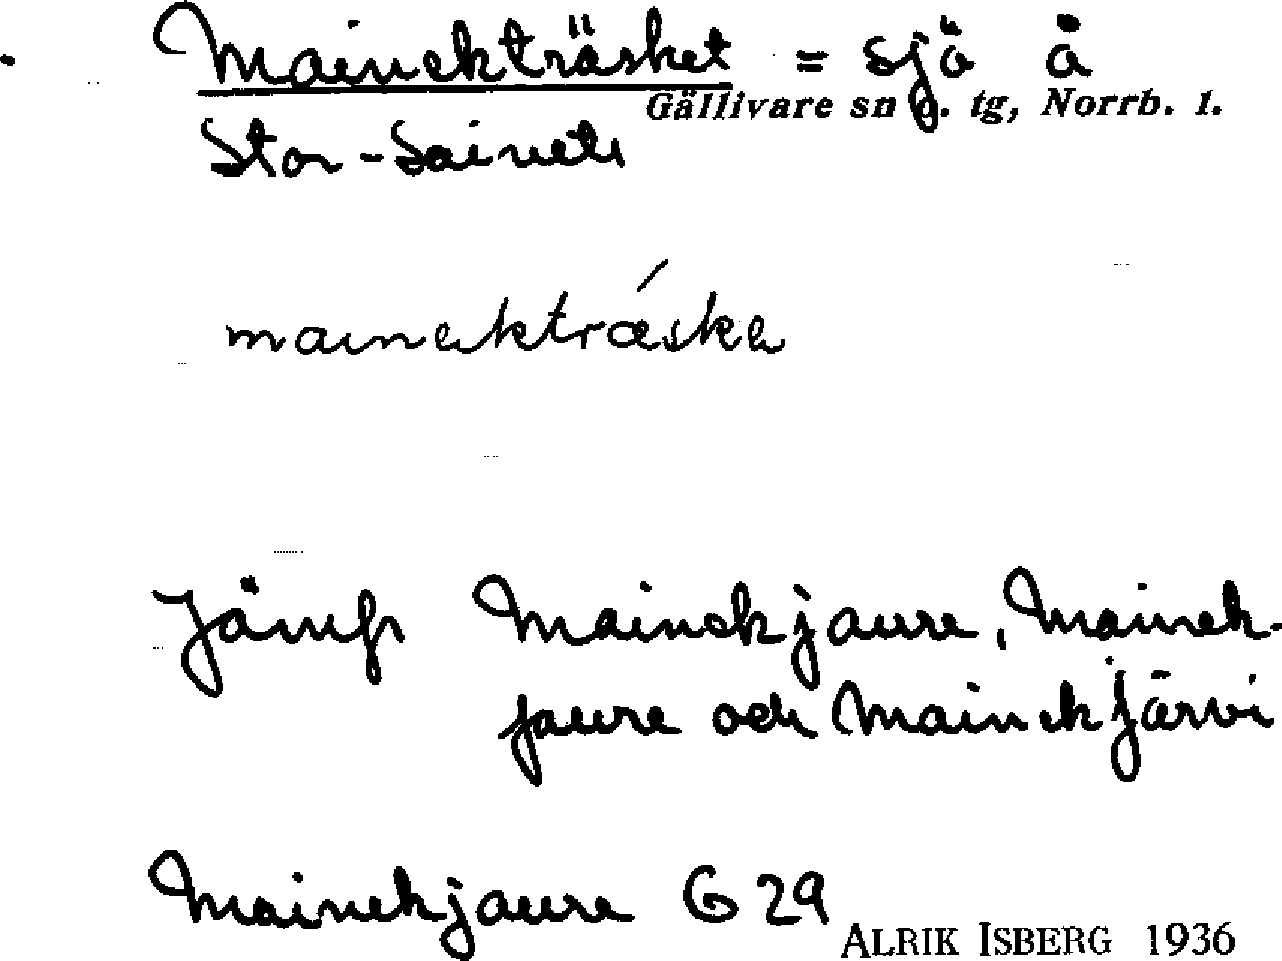 Mainekträsket = sjö å
Gällivare sn o. tg, Norrb. l.
Stor-Saivets
mainekträska
Jämfr Mainekjaure, Mainek-
jaure och Mainekjärvi
Mainekjaure G 29
ALRIK ISBERG 1936